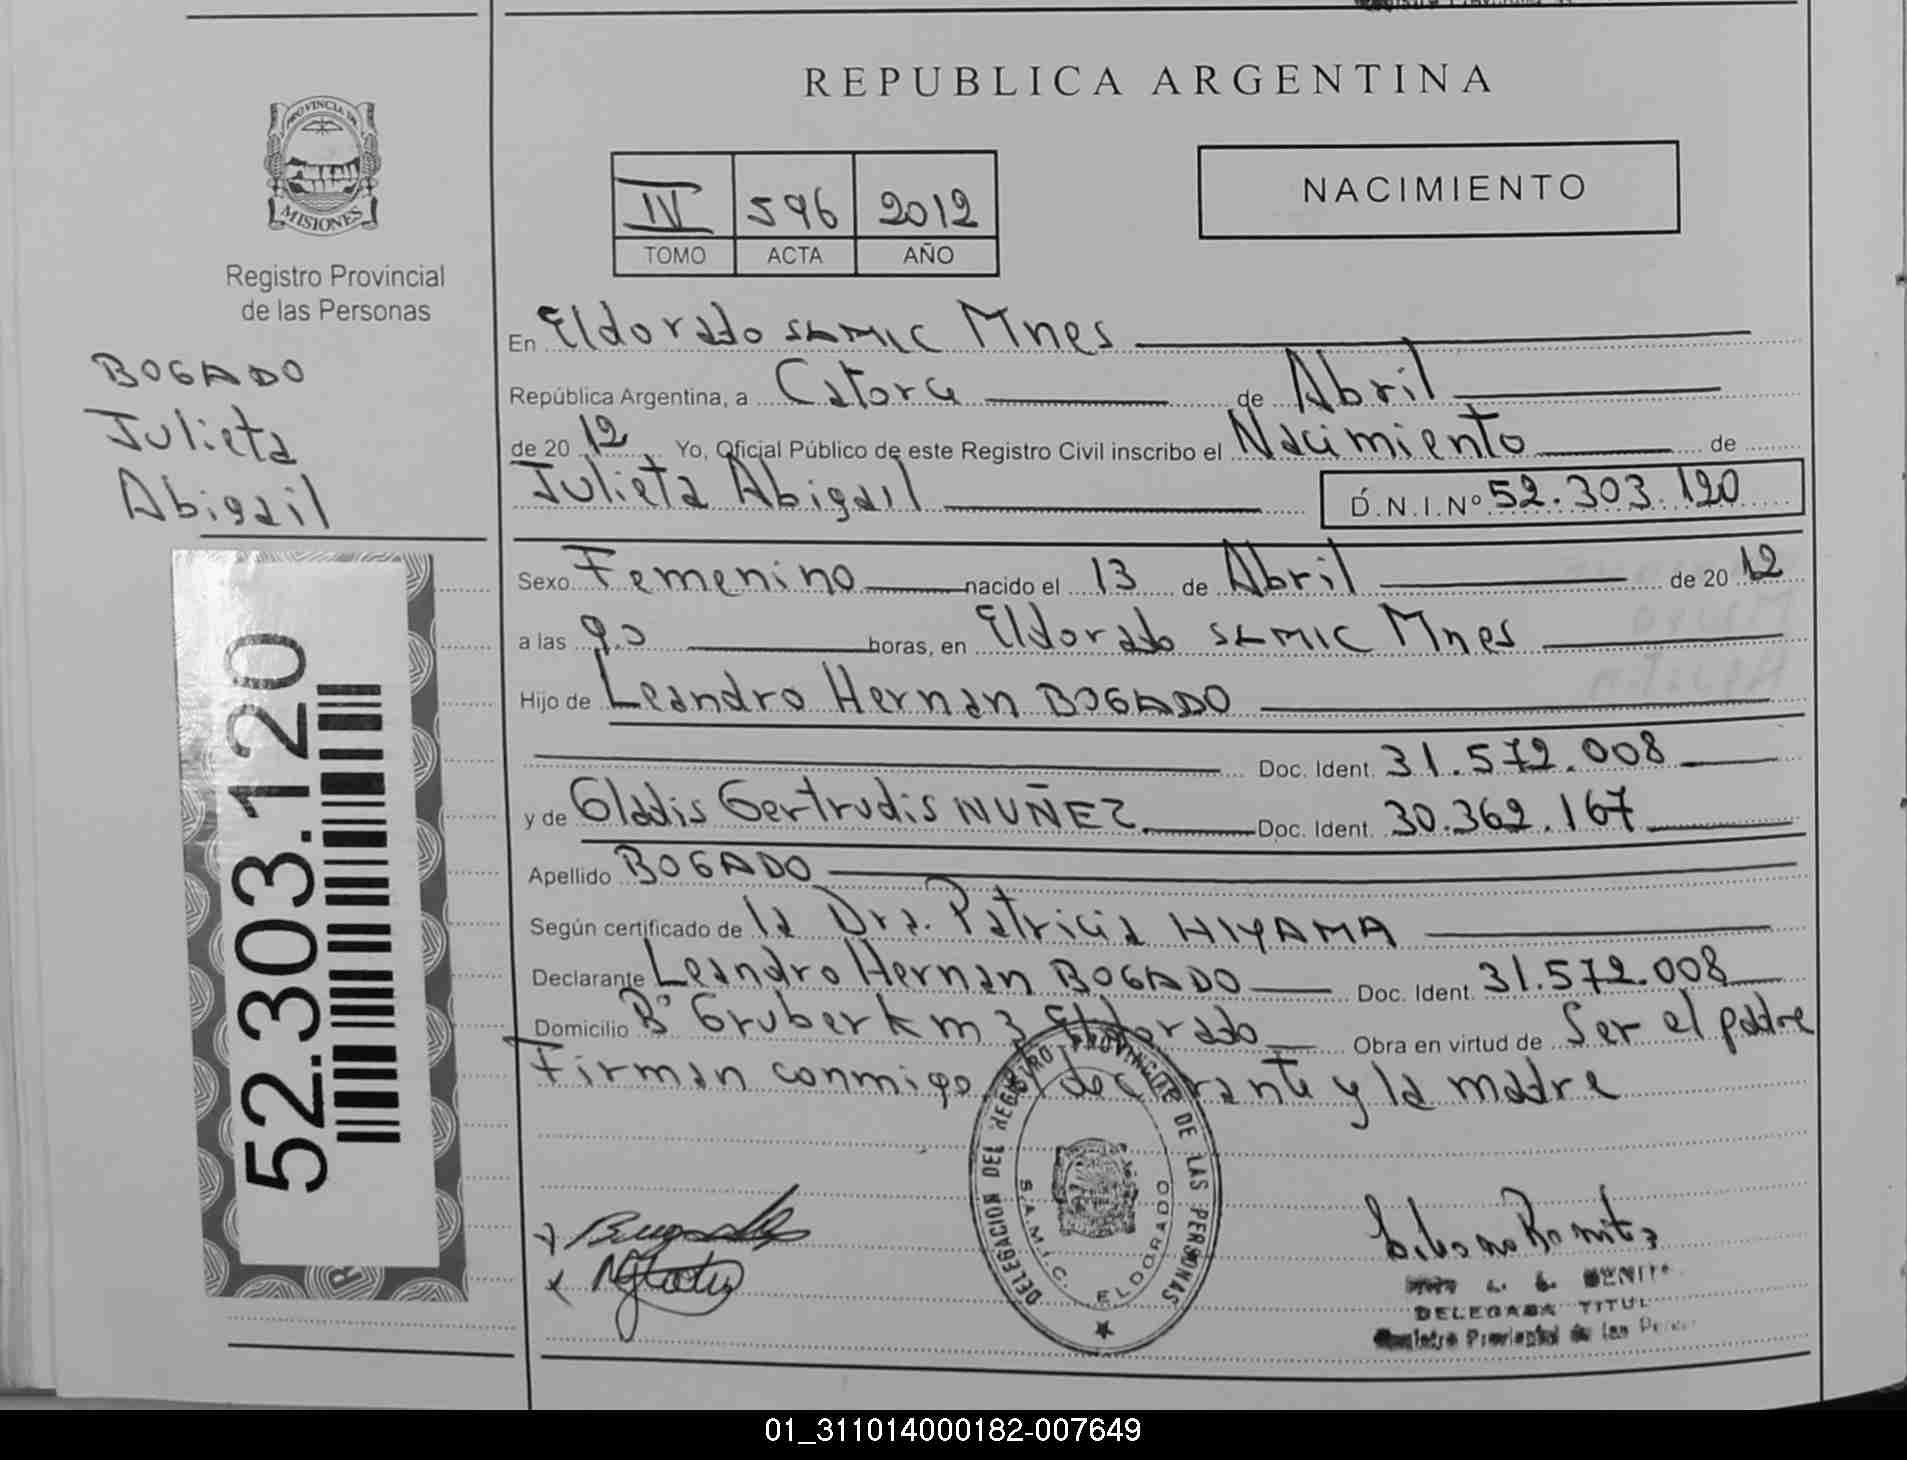 REPUBLICA ARGENTINA
PROVINCIA DE
MISIONES
Registro Provincial
de las Personas
BOGADO
Julieta
Abigail
52.303.120
IV 596 2012
TOMO ACTA AÑO
NACIMIENTO
En Eldorado SAMIC Mnes
República Argentina, a Catorce de Abril
de 20 12 Yo, Oficial Público de este Registro Civil inscribo el Nacimiento de
Julieta Abigail D.N.I.Nº 52.303.120
Sexo Femenino nacido el 13 de Abril de 20 12
a las 9.0 horas, en Eldorado SAMIC Mnes
Hijo de Leandro Hernan BOGADO
Doc. Ident. 31.572.008
y de Gladis Gertrudis NUÑEZ Doc. Ident. 30.362.167
Apellido BOGADO
Según certificado de la Dra. Patricia HIYAMA
Declarante Leandro Hernan BOGADO Doc. Ident. 31.572.008
Domicilio Bº Gruber km 3 Eldorado Obra en virtud de Ser el padre
Firman conmigo declarante y la madre
DELEGACION DEL REGISTRO PROVINCIAL DE LAS PERSONAS
S.A.M.I.C. ELDORADO
DELEGADA TITUL
Registro Provincial de las
01_311014000182-007649